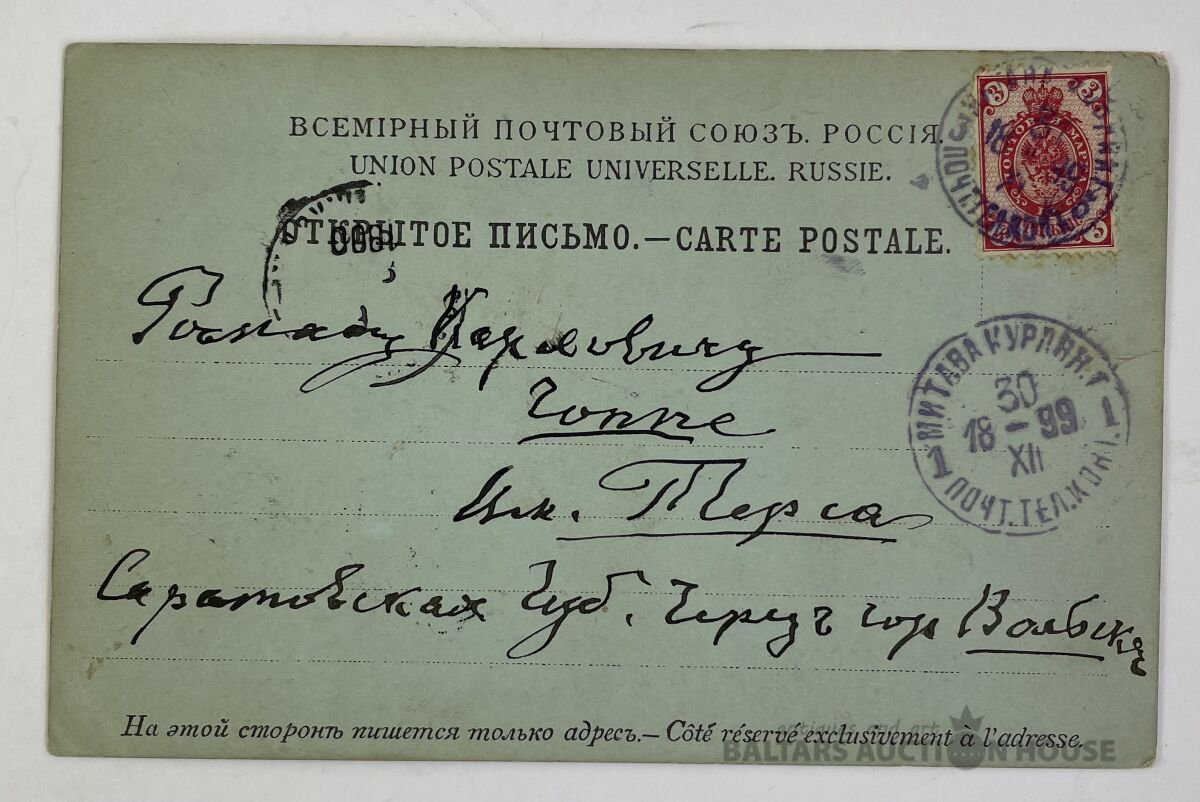 ВСЕМІРНЫЙ ПОЧТОВЫЙ СОЮЗЪ. РОССІЯ.
UNION POSTALE UNIVERSELLE. RUSSIE.
ОТКРЫТОЕ ПИСЬМО.—CARTE POSTALE.
3 3
3
1900
Карловичу
Гоппе
Им. Терса
Саратовская Губ. Черезъ гор Вольскъ
МИТАВА КУРЛЯН. Г
30
18-99
XII
1 1
ПОЧТ. ТЕЛ. КОН.
На этой сторонѣ пишется только адресъ.— Côté réservé exclusivement à l'adresse.
antiques and art
BALTARS AUCTION HOUSE